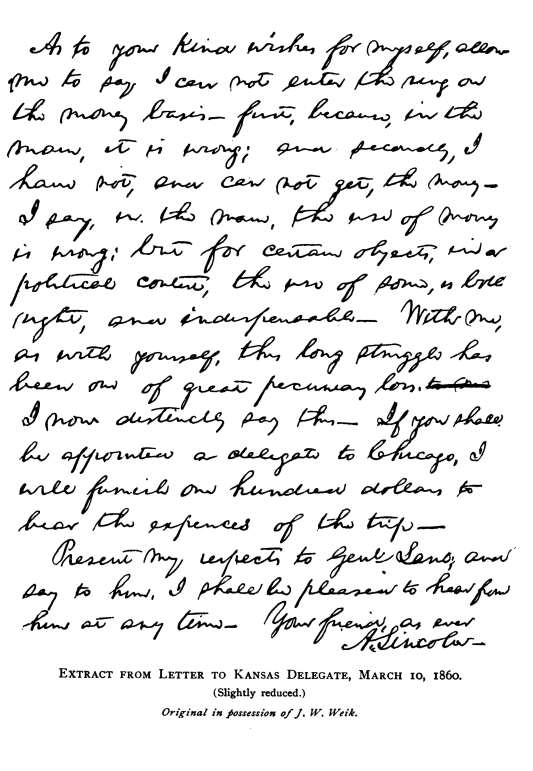 As to your kind wishes for myself, allow
me to say I can not enter the ring on
the money basis — first, because, in the
main, it is wrong; and secondly, I
have not, and can not get, the money —
I say, in the main, the use of money
is wrong; but for certain objects, in a
political contest, the use of some, is both
right, and indispensable — With me,
as with yourself, this long struggle has
been one of great pecuniary loss.
I now distinctly say this — If you shall
be appointed a delegate to Chicago, I
will furnish one hundred dollars to
bear the expences of the trip —
Present my respects to Genl Lane; and
say to him, I shall be pleased to hear from
him at any time — Your friend, as ever
A. Lincoln —
EXTRACT FROM LETTER TO KANSAS DELEGATE, MARCH 10, 1860.
(Slightly reduced.)
Original in possession of J. W. Weik.